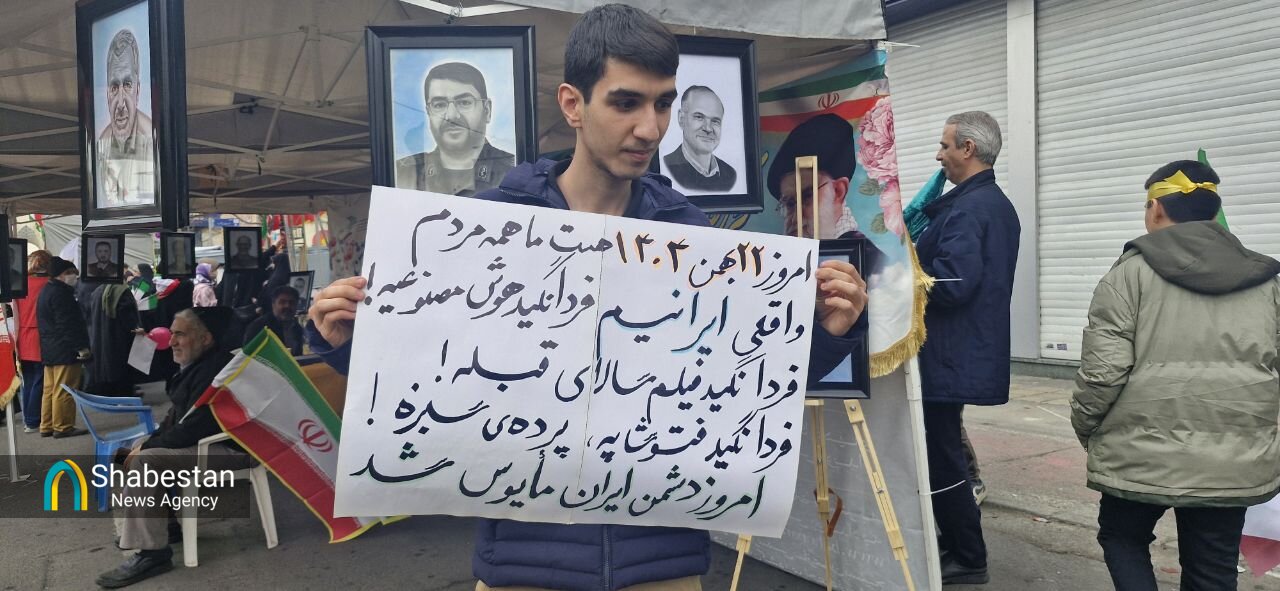 امروز ۲۲ بهمن ۱۴۰۴ هست ما همه مردم
واقعی ایرانیم فردا نگید هوش مصنوعیه!
فردا نگید فیلم سالای قبله!
فردا نگید فتوشاپه، پرده‌ی سبزه!
امروز دشمن ایران مأیوس شد
Shabestan
News Agency